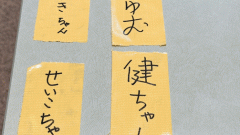 きちゃん
ゅむ
せいこちゃ
健ちゃん